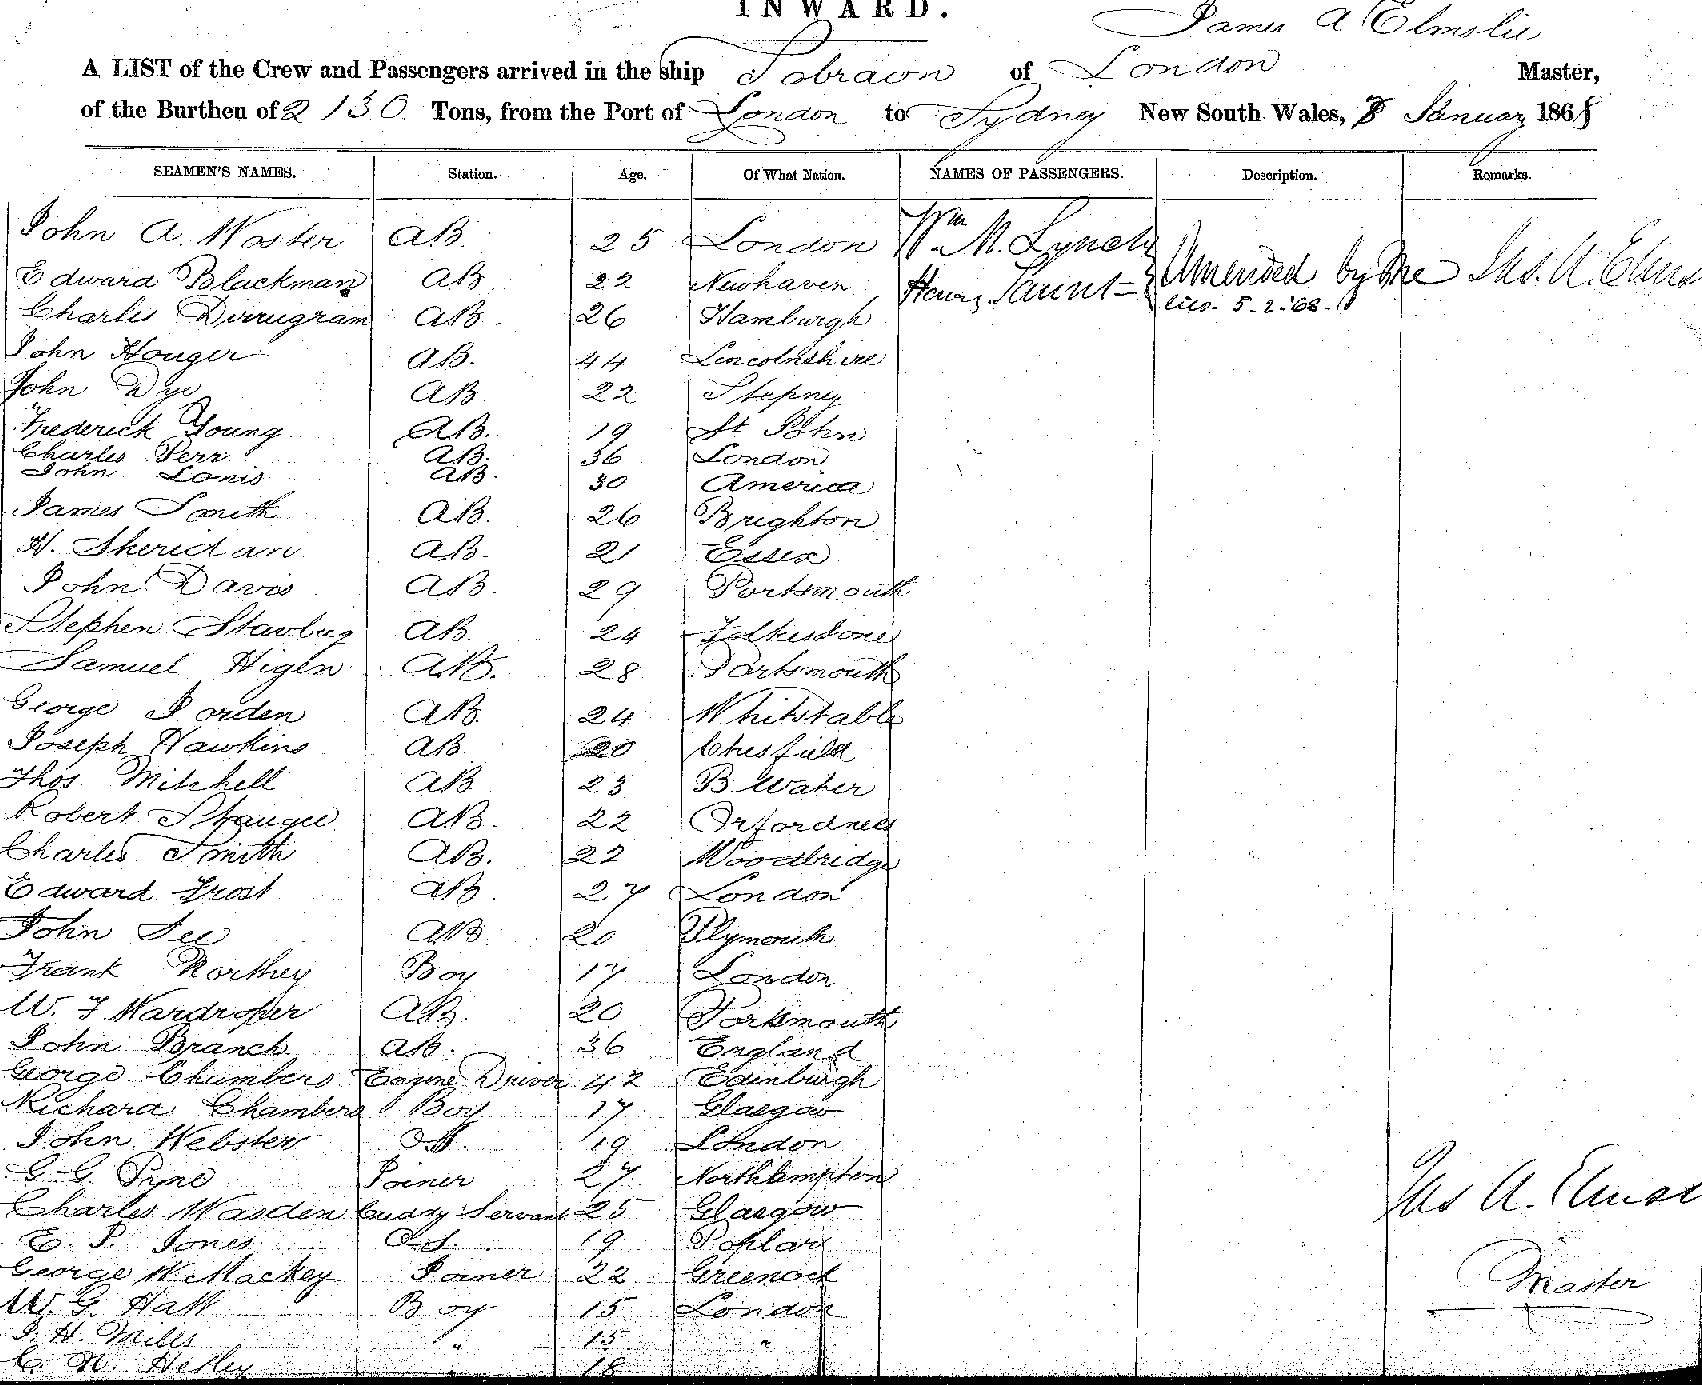 INWARD.
James A Elmslie
A LIST of the Crew and Passengers arrived in the ship Sobraon of London Master,
of the Burthen of 2130 Tons, from the Port of London to Sydney New South Wales, 8 January 1868
SEAMEN'S NAMES. Station. Age. Of What Nation. NAMES OF PASSENGERS. Description. Remarks.
John A. Woster AB. 25 London Wm M. Lynch
Edward Blackman AB 22 Newhaven Henry Saunt Amended by me Jas. A. Elms
Charles AB. 26 Hamburgh 5.2.68.
John Houger AB. 44 Lincolnshire
John Dye AB 22 Stepney
Frederick Young AB. 19 St John
Charles Perr AB. 36 London
John Louis AB. 30 America
James Smith AB. 26 Brighton
H. Sheridan AB. 21 Essex
John Davis AB. 29 Portsmouth
Stephen AB. 24 Folkestone
Samuel Higen AB. 28 Portsmouth
George Jorden AB. 24 Whitstable
Joseph Hawkins AB 20
Thos Mitchell AB 23 B. Water
Robert AB. 22 Orfordness
Charles Smith AB. 22 Woodbridge
Edward Frost AB 27 London
John See AB 20 Plymouth
Frank Northey Boy 17 London
W. F Wardroper AB. 20 Portsmouth
John Branch AB. 36 England
George Chambers Engine Driver 42 Edinburgh
Richard Chambers Boy 17 Glasgow
John Webster OS. 19 London
G. G. Pyne Joiner 27 Northhampton
Charles Wasden Cuddy Servant 25 Glasgow Jas A. Elmsl
E. P. Jones O.S. 19 Poplar
George W. Mackey Joiner 22 Greenock Master
W. G. Hall Boy 15 London
J. H. Mills " 15 "
C. N. Hetley " 18